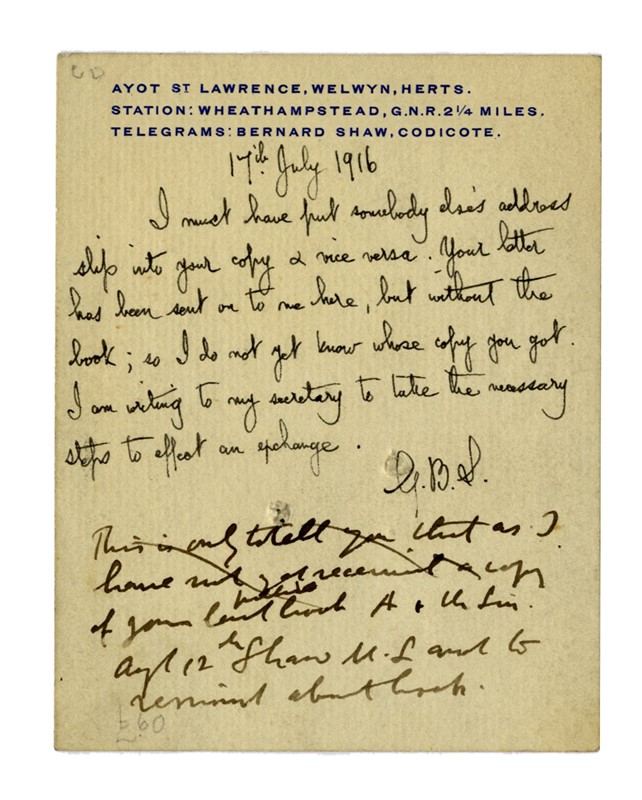 AYOT ST LAWRENCE, WELWYN, HERTS.
STATION: WHEATHAMPSTEAD, G.N.R. 2¼ MILES.
TELEGRAMS: BERNARD SHAW, CODICOTE.
17th July 1916
I must have put somebody else's address
slip into your copy & vice versa. Your letter
has been sent on to me here, but without the
book; so I do not yet know whose copy you got.
I am writing to my secretary to take the necessary
steps to effect an exchange.
G.B.S.
This is only to tell you that as I
have not yet received a copy
of your last book A & the
12th Shaw and to
about book.
£60